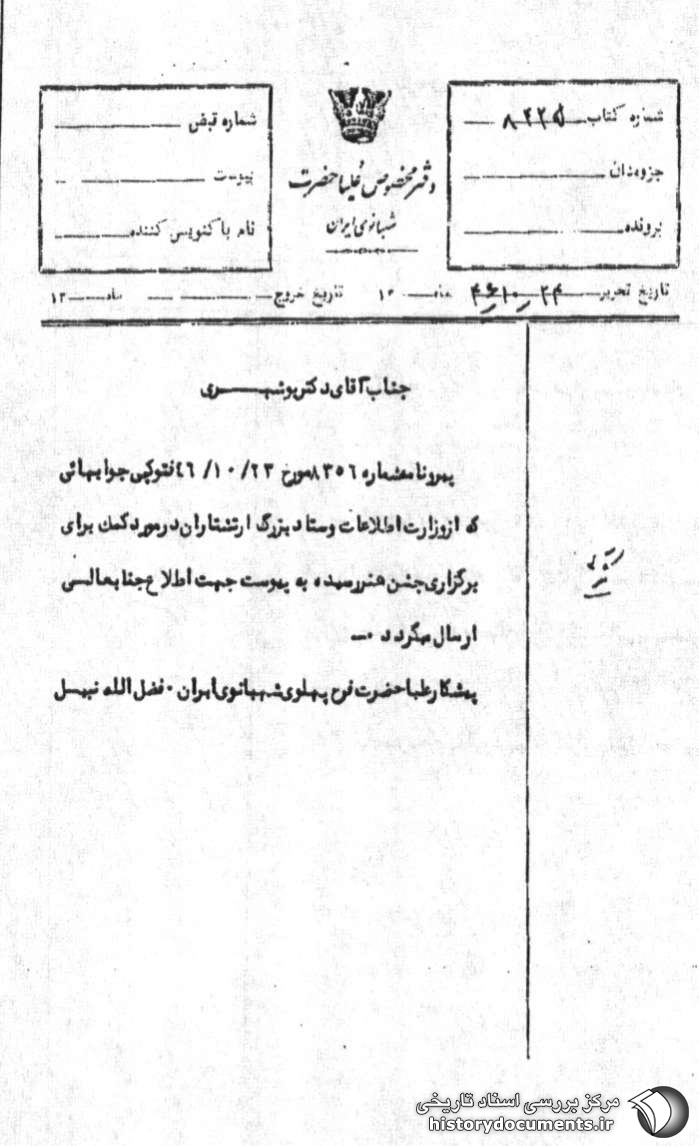 شماره کتاب ۸۴۴۵
جزوه‌دان
پرونده
دفتر مخصوص علیاحضرت
شهبانوی ایران
شماره قبض
پیوست
نام پاکنویس کننده
تاریخ تحریر ۲۴-۱۰-۴۶ ماه ۱۳ تاریخ خروج ماه ۱۳
جناب آقای دکتر بوشهری
پیرو نامه شماره ۸۳۵۶ مورخ ۲۳/ ۱۰/ ۴۶ فتوکپی جوابهائی
که از وزارت اطلاعات و ستاد بزرگ ارتشتاران در مورد کمک برای
برگزاری جشن هنر رسیده به پیوست جهت اطلاع جنابعالی
ارسال میگردد ۰-
پیشکار علیاحضرت فرح پهلوی شهبانوی ایران ۰ فضل الله نبیل
مرکز بررسی اسناد تاریخی
historydocuments.ir